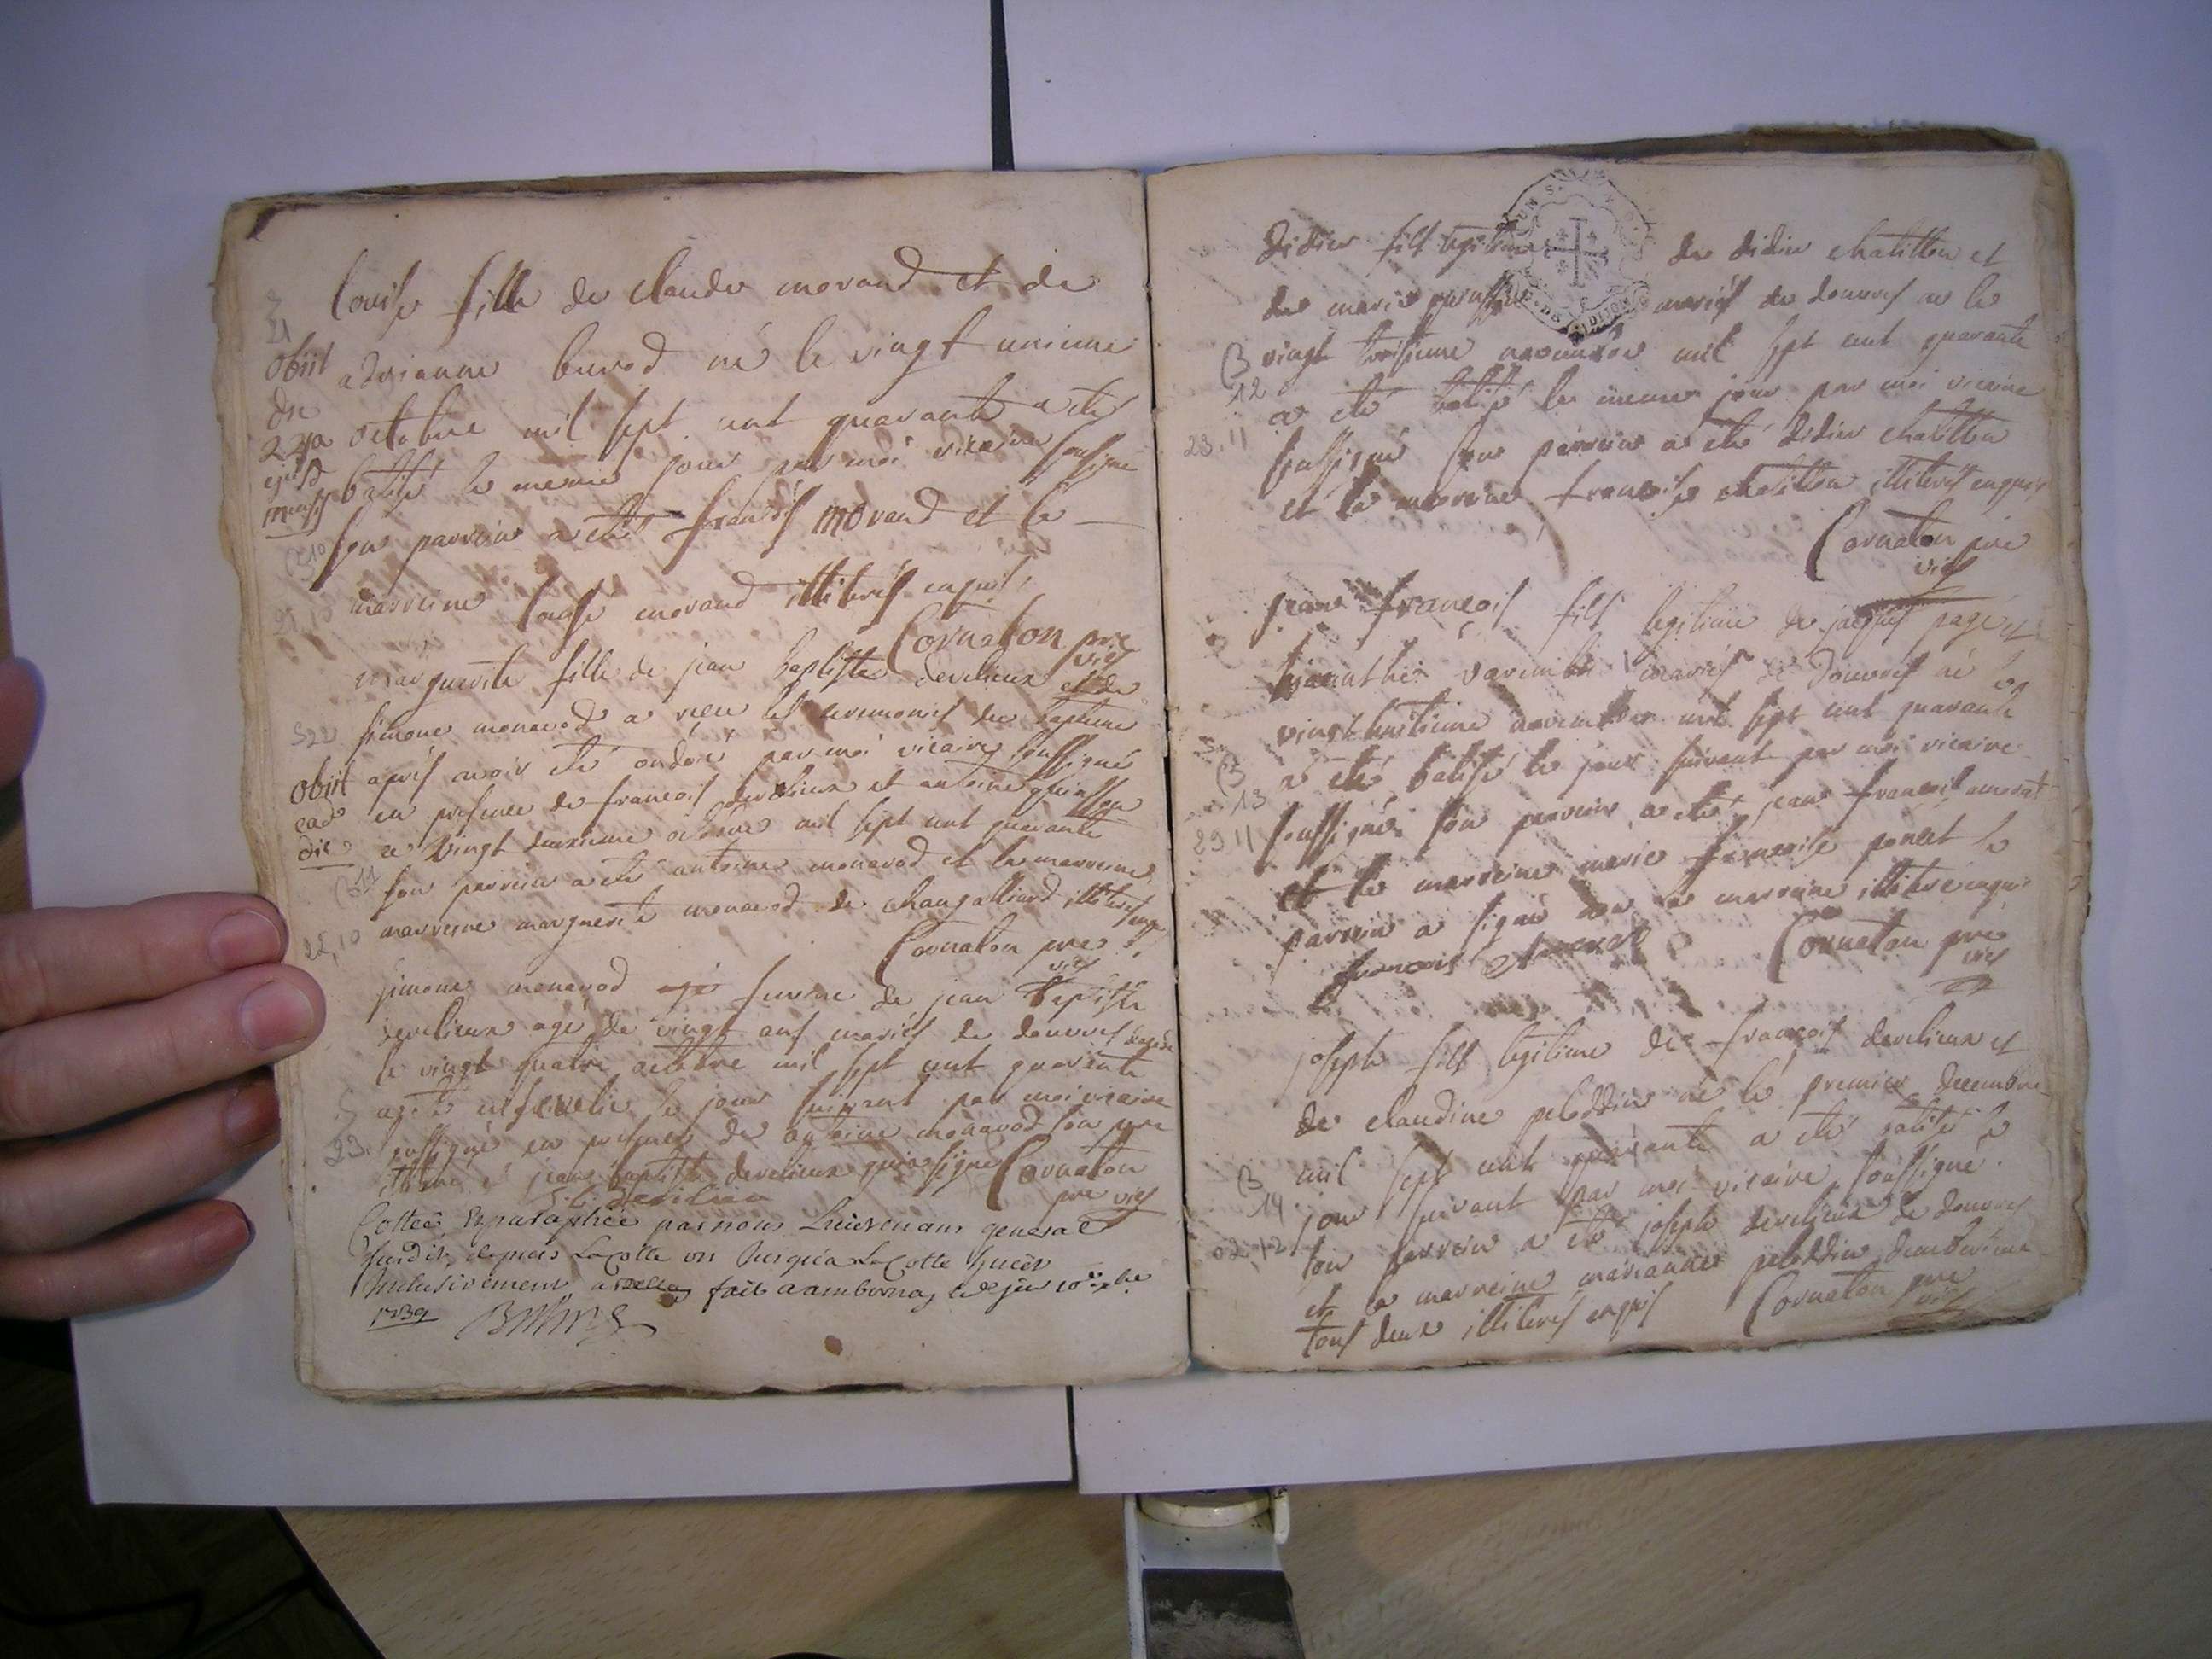 louise fille de claude morand et de
adrianne buvod né le vingt unieme
octobre mil sept cent quarante a été
batisé le meme jour par moi vicaire soussigné
son parrein a été francois morand et la
marreine louise morand illiterés enquis
Cornaton pre
vic
obiit
die
22a
ejusd
mensis
B 10
21 10
marguerite fille de jean baptiste dervlieux et de
simone monavod a reçu les ceremonies du bapteme
après avoir été ondoié par moi vicaire soussigné
en presence de francois dervlieux et antoine
ce vingt deuxieme octobre mil sept cent quarante
son parrein a été antoine monavod et la marreine
marreine marguerite monavod de illiterés enq
Cornaton pre
vic
522
obiit
ead
die
B 11
22, 10
simone monavod femme de jean baptiste
dervlieux agé de vingt ans mariés de douvres decedé
le vingt quatre octobre mil sept cent quarante
a été ensevelie le jour suivant par moi vicaire
soussigné en presence de antoine monavod son pere
illitéré et jean baptiste dervlieux qui a signé Cornaton
pre vic
S
23
Cottée et paraphée par nous Lieutenant general
susdit, depuis La Cotte un jusqu'a La Cotte
inclusivement fait a ambournay
1739
didier fils legitime de didier chatillon et
de marie mariés de douvres né le
vingt troisieme novembre mil sept cent quarante
a été batisé le meme jour par moi vicaire
soussigné son parrein a été didier chatillon
et la marreine françoise chatillon illiterés enquis
Cornaton pre
vic
B
12
23, 11
jean françois fils legitime de jacques page et
varembon mariés de douvres né le
vingt huitieme novembre mil sept cent quarante
a été batisé le jour suivant par moi vicaire
soussigné son parrein a été jean françois
et la marreine marie françoise poncet le
parrein a signé non la marreine illiterée enquis
françois Cornaton pre
vic
B
13
29 11
joseph fils legitime de françois dervlieux et
de claudine peloddin né le premier decembre
mil sept cent quarante a été batisé le
jour suivant par moi vicaire soussigné
son parrein a été joseph dervlieux de douvres
et la marreine marianne peloddin
tous deux illiterés enquis Cornaton pre
vic
B
14
02, 12